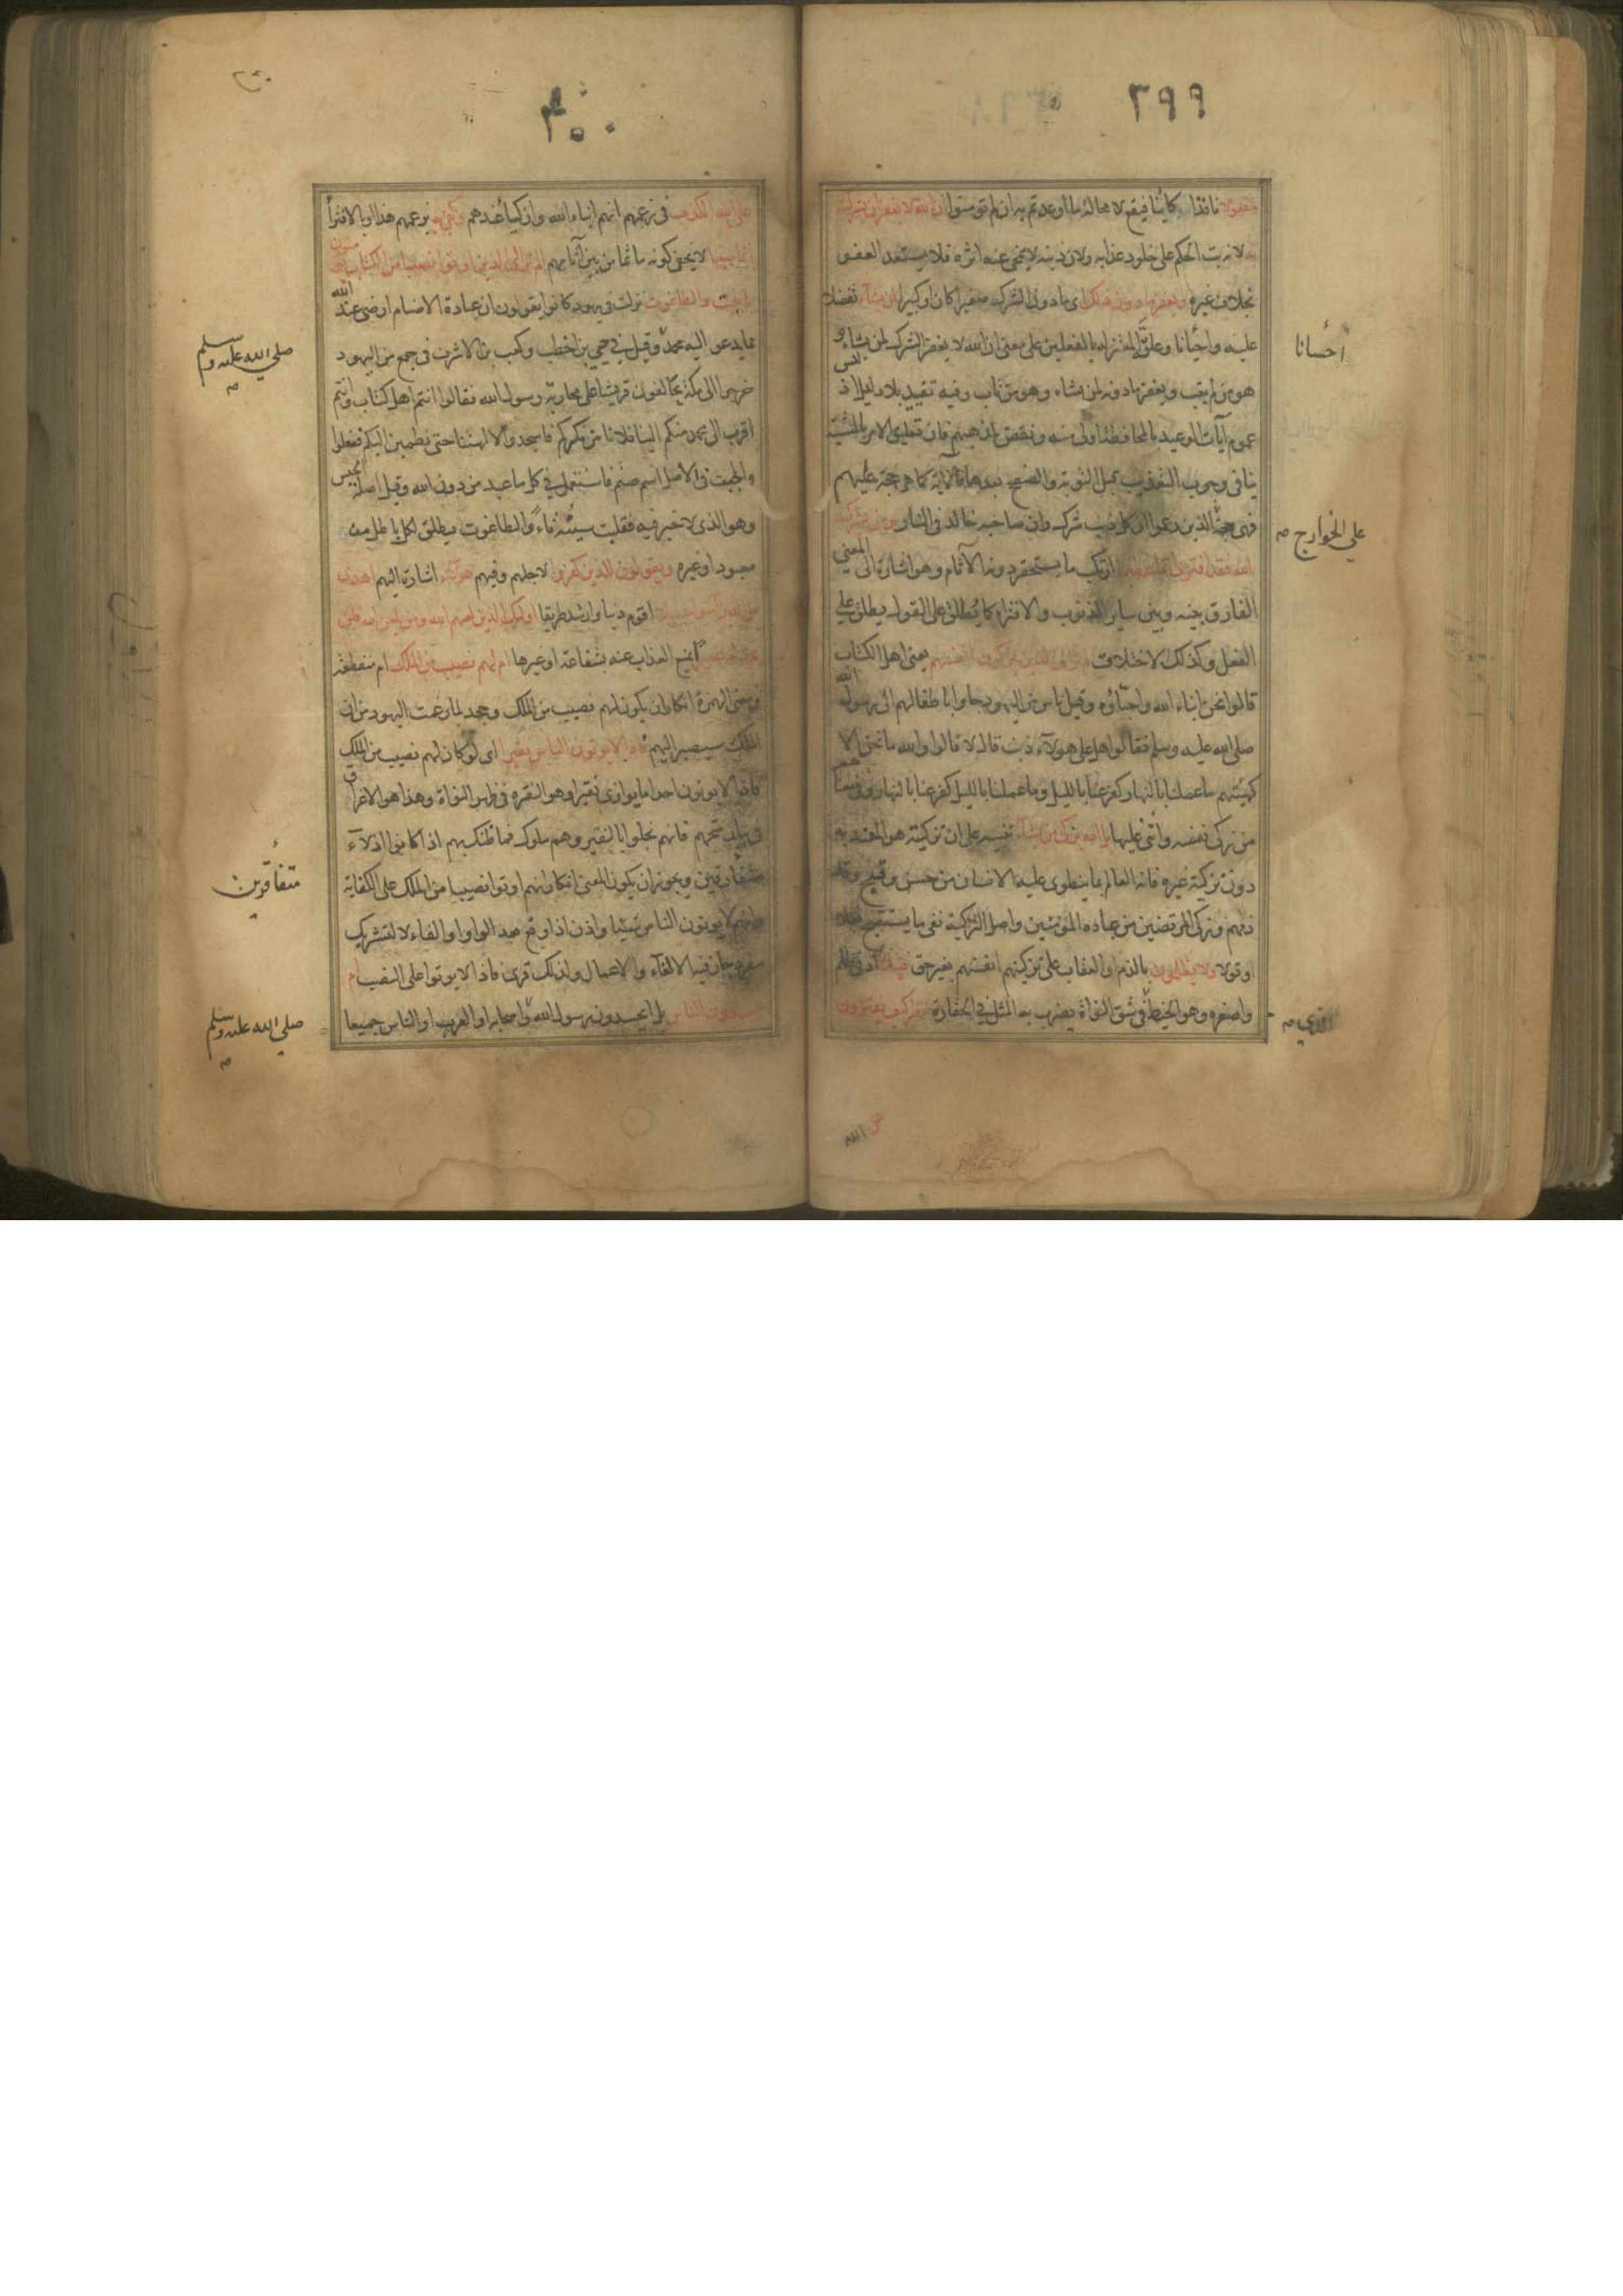 ٣٩٩
مفعولا نافذا كاينا فيقع لا محالة ما اوعدتم به ان لم تومنوا ان الله لا يغفر ان يشرك
به لانه بت الحكم على خلود عذابه ولان ذنبه لا ينمحي عنه اثره فلا يستعد للعفو
بخلاف غيره ويغفر ما دون ذلك اى ما دون الشرك صغيرا كان او كبيرا لمن يشاء تفضلا
عليه واحسانا وعلق المعتزله بالفعلين على معنى ان الله لا يغفر الشرك لمن يشاء و
هو من لم يتب ويغفر ما دونه لمن يشاء وهو من تاب وفيه تقييد بلا دليل اذ ليس
عموم آيات الوعيد بالمحافظة اولى منه ونقض لمذهبهم فان تعليق الامر بالمشيّة
ينافى وجوب التعذيب قبل التوبة والصفح بعدها فالاية كما هى حجة عليهم
فهى حجة الذين زعموا ان كل ذنب شرك وان صاحبه خالد فى النار ومن يشرك
بالله فقد افترى اثما عظيما ارتكب ما يستحقر دونه الآثام وهو اشارة الى المعنى
الفارق بينه وبين ساير الذنوب والافتراء كما يُطلق على القول يطلق على
الفعل وكذلك الاختلاق الم تر الى الذين يزكون انفسهم يعنى اهل الكتاب
قالوا نحن ابناء الله واحباؤه وقيل ناس من اليهود جاوا باطفالهم الى رسول الله
صلى الله عليه وسلم فقالوا هل على هولاء ذنب قال لا قالوا والله ما نحن الا
كهيئتهم ما عملنا بالنهار كفر عنا بالليل وما عملنا بالليل كفر عنا بالنهار وفى معناهم
من زكى نفسه واثنى عليها بل الله يزكى من يشاء تنبيه على ان تزكيته هو المعتد به
دون تزكية غيره فانه العالم بما ينطوى عليه الانسان من حسن وقبيح وقد
ذمهم وزكى المرتضين من عباده المؤمنين واصل التزكية نفى ما يستقبح فعلا
او قولا ولا يظلمون بالذم او العقاب على تزكيتهم انفسهم بغير حق فتيلا ادنى ظلم
واصغره وهو الخيط فى شق النواة يضرب به المثل فى الحقارة انظر كيف يفترون
احسانا
على الخوارج
الذى
على الله
٤٠٠
على الله الكذب فى زعمهم انهم ابناء الله وازكياء عندهم وكفى به بزعمهم هذا او بالافترآ
اثما مبينا لا يخفى كونه ماثما من بين آثامهم الم تر الى الذين اوتوا نصيبا من الكتاب يومنون
بالجبت والطاغوت نزلت فى يهود كانوا يقولون ان عبادة الاصنام ارضى عند الله
مما يدعو اليه محمد وقيل فى حيي بن اخطب وكعب بن الاشرف فى جمع من اليهود
خرجوا الى مكة يحالفون قريشا على محاربة رسول الله فقالوا انتم اهل كتاب وانتم
اقرب الى محمد منكم الينا فلا نامن مكركم فاسجدوا لالهتنا حتى نطمين اليكم ففعلوا
والجبت فى الاصل اسم صنم فاستعمل فى كل ما عبد من دون الله وقيل اصله الجبس
وهو الذى لا خير فيه فقلبت سينه تاءً والطاغوت يطلق لكل باطل من
معبود او غيره ويقولون للذين كفروا لاجلهم وفيهم هولاء اشارة اليهم اهدى
من الذين آمنوا سبيلا اقوم دينا وارشد طريقا اولئك الذين لعنهم الله ومن يلعن الله فلن
تجد له نصيرا يمنع العذاب عنه بشفاعة او غيرها ام لهم نصيب من الملك ام منقطعة
ومعنى الهمزة انكار ان يكون لهم نصيب من الملك وجحد لما زعمت اليهود من ان
الملك سيصير اليهم فاذا لا يوتون الناس نقيرا اى لو كان لهم نصيب من الملك
فاذا لا يوتون احدا ما يوازى نقيرا وهو النقرة فى ظهر النواة وهذا هو الاغراق
فى بيان شحهم فانهم بخلوا بالنقير وهم ملوك فما ظنك بهم اذا كانوا اذلآء
متفاقرين ويجوز ان يكون المعنى انكار انهم اوتوا نصيبا من الملك على الكناية
وانهم لا يوتون الناس شيئا واذن اذا وقع بعد الواو او الفاء لا لتشريك
مفرد جاز فيه الالغاء والاعمال ولذلك قرى فاذا لا يوتوا على النصب ام
يحسدون الناس بل ايحسدون رسول الله واصحابه او العرب او الناس جميعا
صلى الله عليه وسلم
متفاقرين
صلى الله عليه وسلم